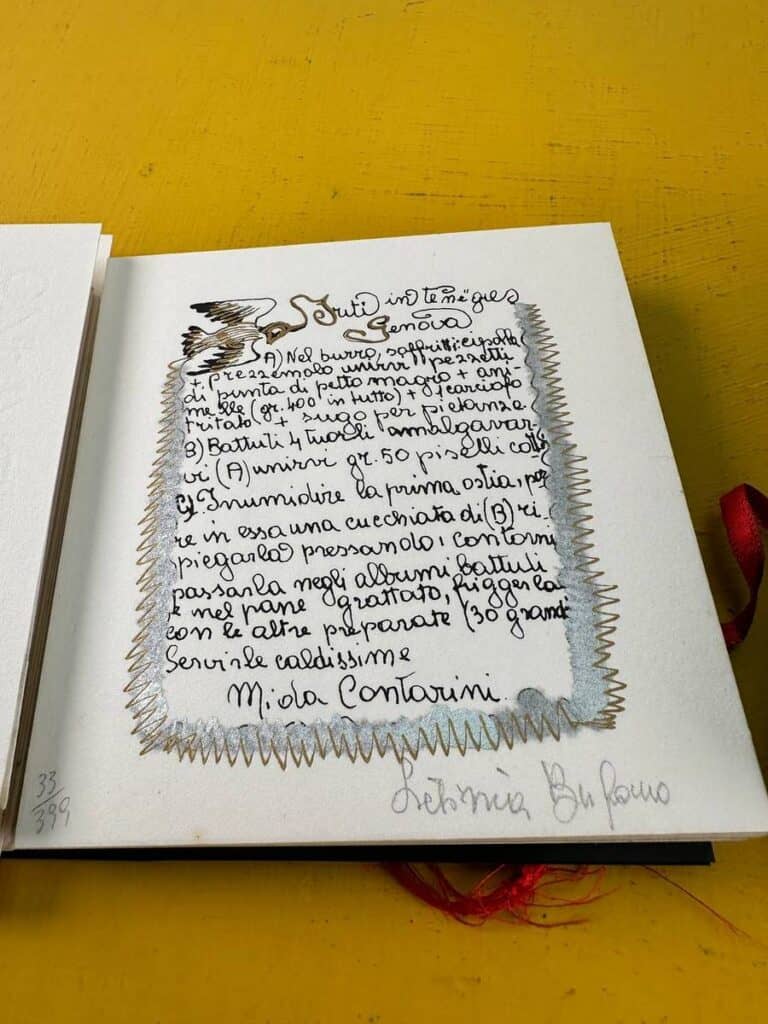 Friti in te nëgies
Genova
A) Nel burro, soffritti: cipolla
+ prezzemolo unirvi pezzetti
di punta di petto magro + ani-
melle (gr. 400 in tutto) + 1 carciofo
tritato + sugo per pietanze
B) Battuti 4 tuorli amalgavar-
vi (A) unirvi gr. 50 piselli cotti
C) Inumidire la prima ostia, por
re in essa una cucchiata di (B) ri-
piegarla pressando i contorni
passarla negli albumi battuti
e nel pane grattato, friggerla
con le altre preparate (30 grandi
Servirle caldissime
Mida Contarini
33
399